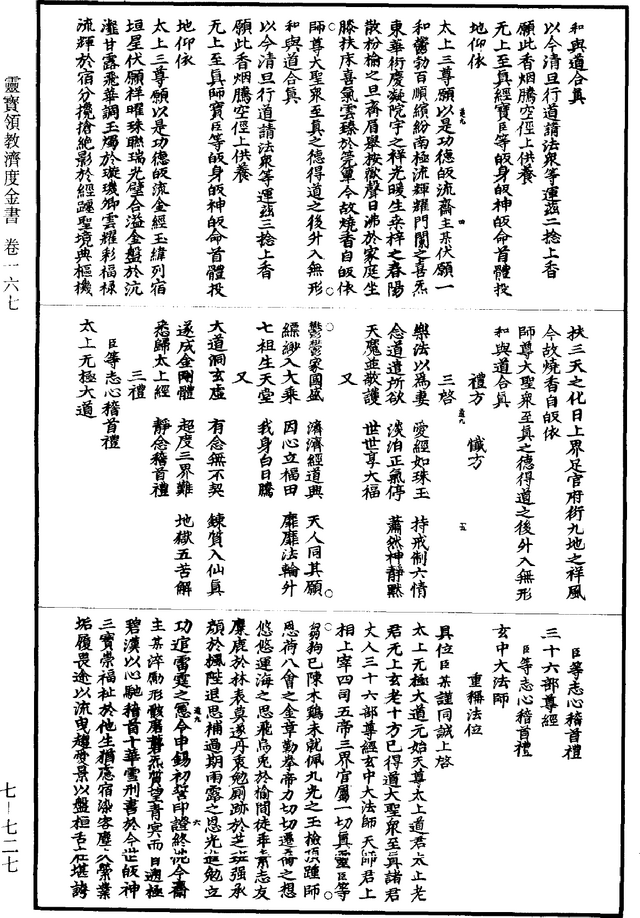 和與道合眞
以今清旦行道請法衆等運茲二捻上香
願此香烟騰空徑上供養
无上至真經寶臣等皈身皈神皈命首體投
地仰依
太上三尊願以是功德皈流齋主某伏願一
和靄勃百順繽紛南極流輝耀門闌之喜炁
東華衍慶凝院宇之祥光暖生桒梓之春陽
散枌楡之旦齊眉舉按歡聲日沸於家庭坐
膝扶床喜氣雲臻於
今故燒香自皈依
師尊大聖衆至真之德得道之後外入無形
和與道合眞
以今清旦行道請法衆等運茲三捻上香
願此香烟騰空徑上供養
无上至真師寶臣等皈身皈神皈命首體投
地仰依
太上三尊願以是功德皈流金經玉緯列宿
垣星伏願祥曜珠聯瑞光璧合溢金盤於沆
瀣甘露飛華調玉燭於璇璣卿雲耀彩福祿
流輝於宿分攙搶絶影於經躔聖境典樞機
扶三天之化日上界足官府衍九地之祥風
今故燒香自皈依
師尊大聖衆至真之德得道之後外入無形
和與道合眞
禮方 懺方
三啓
樂法以爲妻 愛經如珠玉 持戒制六情
念道遣所欲 淡泊正氣停 蕭然神靜默
天魔並敬護 世世享大福
又
鬱鬱家國盛 濟濟經道興 天人同其願
縹緲入大乘 因心立福田 靡靡法輪升
七祖生天堂 我身白日騰
又
大道洞玄虛 有念無不契 鍊質入仙真
遂成金剛體 超度三界難 地獄五苦解
悉歸太上經 靜念稽首禮
三禮
臣等志心稽首禮
太上无極大道
臣等志心稽首禮
三十六部尊經
臣等志心稽首禮
玄中大法師
重稱法位
具位臣某謹同誠上啓
太上无極大道元始天尊太上道君太上老
君无上玄老十方已得道大聖衆至真諸君
丈人三十六部尊經玄中大法師天師君上
相上宰四司五帝三界官屬一切真靈臣等
芻狗已陳木鷄未就佩九光之玉檢頂踵師
恩荷八會之金章勤拳帝力切切遷喬之想
悠悠運海之思飛烏兔於愉間徒乖有志友
麋鹿於林表莫遂丹衷勉厠跡於芝班强承
顔於楓陛退思補過期雨露之恩光進勉立
功逭雷霆之
今申錫初誓印證終
今齋
主某淬勵形骸磨礱炁質望青冥而目遡極
碧漢以心馳稽首十華雪刑書於今世皈神
三寶崇福祉於他生猶慮宿染客塵久縈業
垢履畏途以流曳趨
景以盤桓舌在堪誇
靈寶領教濟度金書 卷一六七
七-七二七